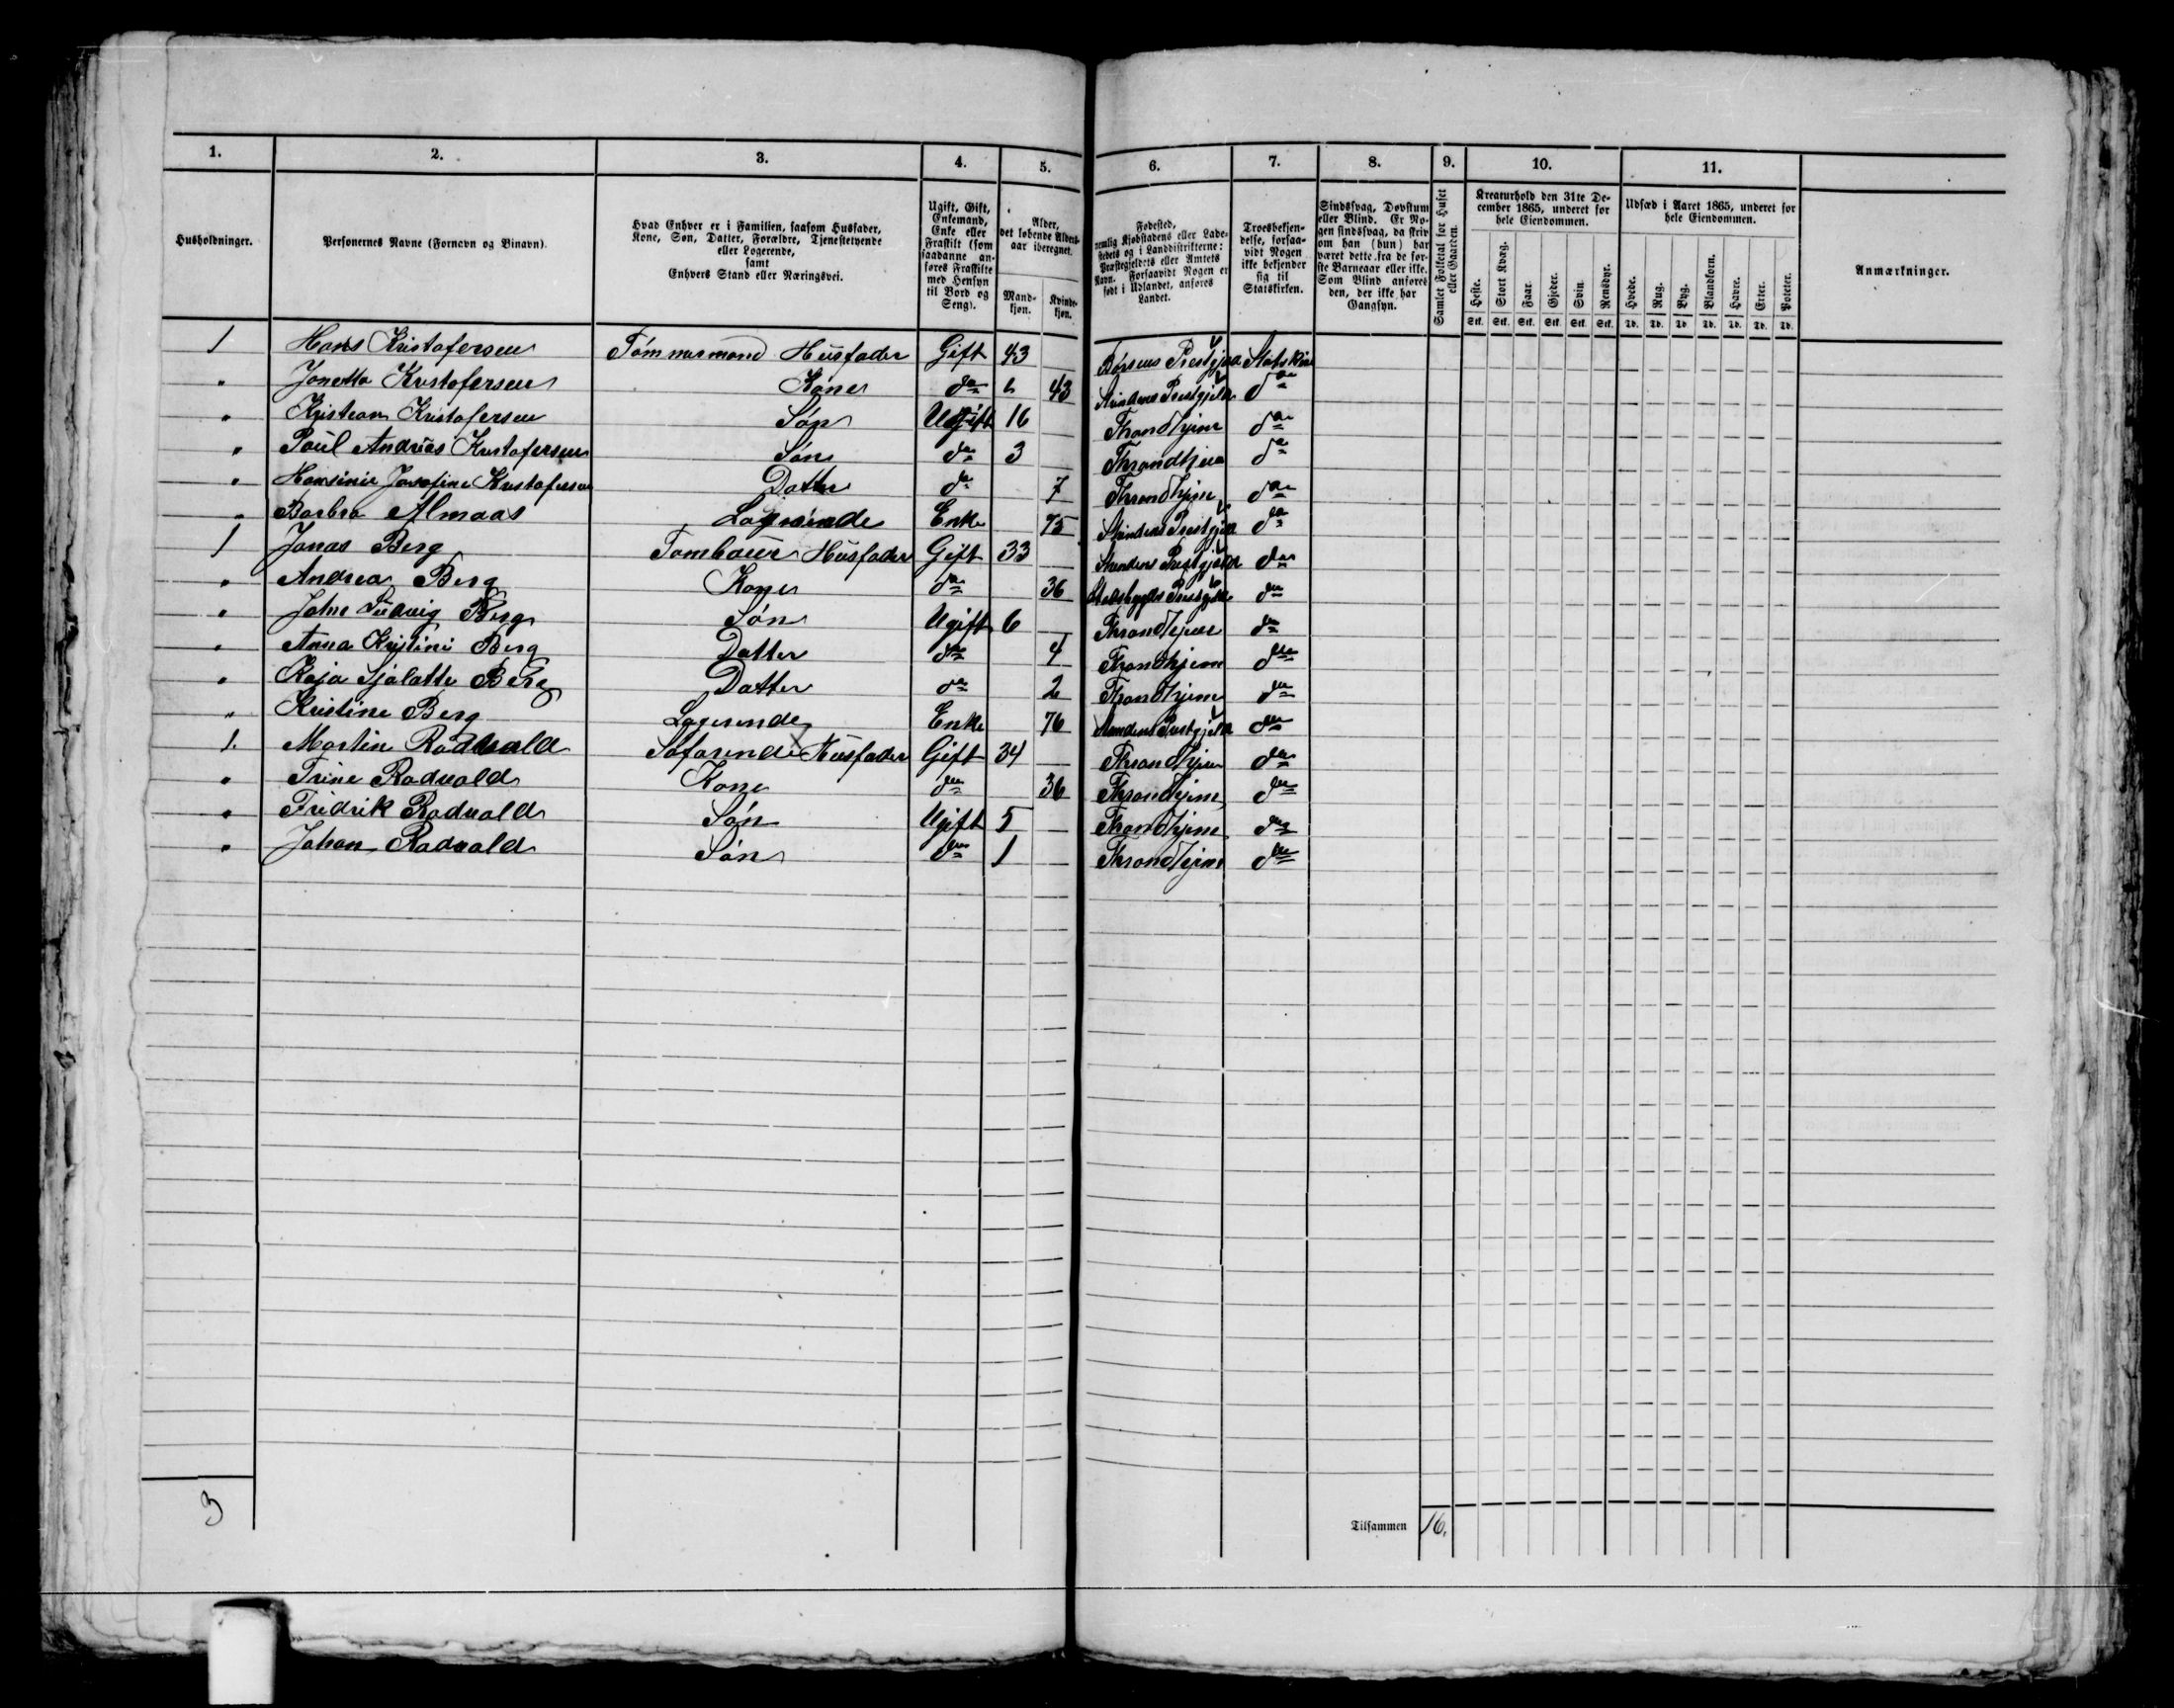 1. 2. 3. 4. 5. 6. 7. 8. 9. 10. 11.
Husholdninger.
Personernes Navne (Fornavn og Binavn).
Hvad Enhver er i Familien, saasom Husfader,
Kone, Søn, Datter, Forældre, Tjenestetyende
eller Logerende,
samt
Enhvers Stand eller Næringsvei.
Ugift, Gift,
Enkemand,
Enke eller
Fraskilt (som
saadanne an-
føres Fraskilte
med Hensyn
til Bord og
Seng).
Alder,
det løbende Alders-
aar iberegnet.
Mand-
kjøn.
Kvinde-
kjøn.
Fødested,
nemlig Kjøbstadens eller Lade-
stedets og i Landdistrikterne:
Præstegjeldets eller Amtets
Navn. Forsaavidt Nogen er
født i Udlandet, anføres
Landet.
Troesbekjen-
delse, forsaa-
vidt Nogen
ikke bekjender
sig til
Statskirken.
Sindssvag, Døvstum
eller Blind. Er No-
gen sindssvag, da skriv
om han (hun) har
været dette fra de før-
ste Barneaar eller ikke.
Som Blind anføres
den, der ikke har
Gangsyn.
Samlet Folketal for Huset
eller Gaarden.
Kreaturhold den 31te De-
cember 1865, underet for
hele Eiendommen.
Heste. Stort Kvæg. Faar. Gjeder. Svin. Rensdyr.
Stk. Stk. Stk. Stk. Stk. Stk.
Udsæd i Aaret 1865, underet for
hele Eiendommen.
Hvede. Rug. Byg. Blandkorn. Havre. Erter. Poteter.
Td. Td. Td. Td. Td. Td. Td.
Anmærkninger.
1 Hans Kristofersen Tømmermand Husfader Gift 43 Børsens Prestgjeld Statskirk
" Jonetta Kristofersen Kone do " 43 Strindens Prestgjeld do
" Kristean Kristofersen Søn Ugift 16 Throndhjem do
" Poul Andrias Kristofersen Søn do 3 Throndhjem do
" Hansinie Josefine Kristofersen Datter do 7 Throndhjem do
" Barbro Almaas Logerende Enke 75 Strindens Prestgjeld do
1 Jonas Berg Husfader Gift 33 Strindens Prestgjeld do
" Andrea Berg Kone do 36 Stadsbygds Prestgjeld do
" Johne Ludvig Berg Søn Ugift 6 Throndhjem do
" Anna Kristine Berg Datter do 4 Throndhjem do
" Kaja Sjalatte Berg Datter do 2 Throndhjem do
" Kristine Berg Logerende Enke 76 Strindens Prestgjeld do
1. Martin Rodvald Søfarende Husfader Gift 34 Throndhjem do
" Trine Rodvald Kone do 36 Throndhjem do
" Fredrik Rodvald Søn Ugift 5 Throndhjem do
" Johan Rodvald Søn do 1 Throndhjem do
3
Tilsammen 16.